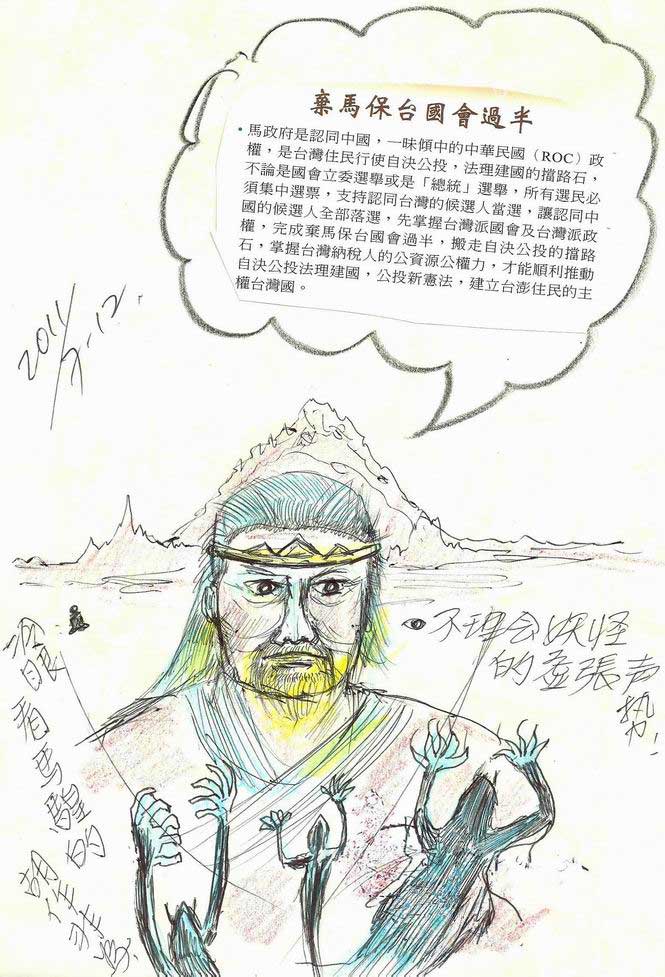 棄馬保台國會過半
•馬政府是認同中國，一味傾中的中華民國（ROC）政
權，是台灣住民行使自決公投，法理建國的擋路石，
不論是國會立委選舉或是「總統」選舉，所有選民必
須集中選票，支持認同台灣的候選人當選，讓認同中
國的候選人全部落選，先掌握台灣派國會及台灣派政
權，完成棄馬保台國會過半，搬走自決公投的擋路
石，掌握台灣納稅人的公資源公權力，才能順利推動
自決公投法理建國，公投新憲法，建立台澎住民的主
權台灣國。
2011
不理会妖怪
的虛張声
势！
冷眼看馬騜的